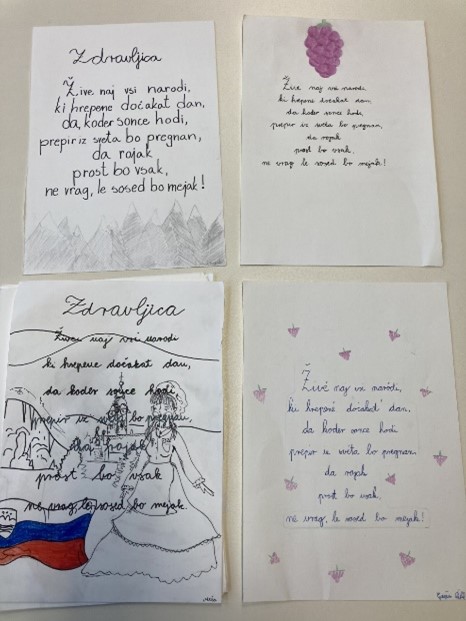 Zdravljica
Žive naj vsi narodi,
ki hrepene dočakat dan,
da, koder sonce hodi,
prepir iz sveta bo pregnan,
da rojak
prost bo vsak,
ne vrag, le sosed bo mejak!
Žive naj vsi narodi,
ki hrepene dočakat dan,
da koder sonce hodi,
prepir iz sveta bo pregnan,
da rojak
prost bo vsak,
ne vrag, le sosed bo mejak!
Zdravljica
Žive naj vsi narodi
ki hrepene dočakat dan,
da koder sonce hodi
prepir iz sveta bo pregnan,
da rojak
prost bo vsak
ne vrag, le sosed bo mejak.
Žive naj vsi narodi,
ki hrepene dočakat dan,
da koder sonce hodi
prepir iz sveta bo pregnan,
da rojak
prost bo vsak,
ne vrag, le sosed bo mejak!